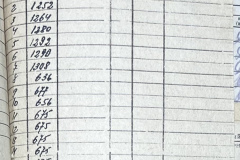 2 1252
3 1264
4 1280
5 1292
6 1290
7 1308
8 636
9 677
10 656
11 675
12 675
13 675
14 675